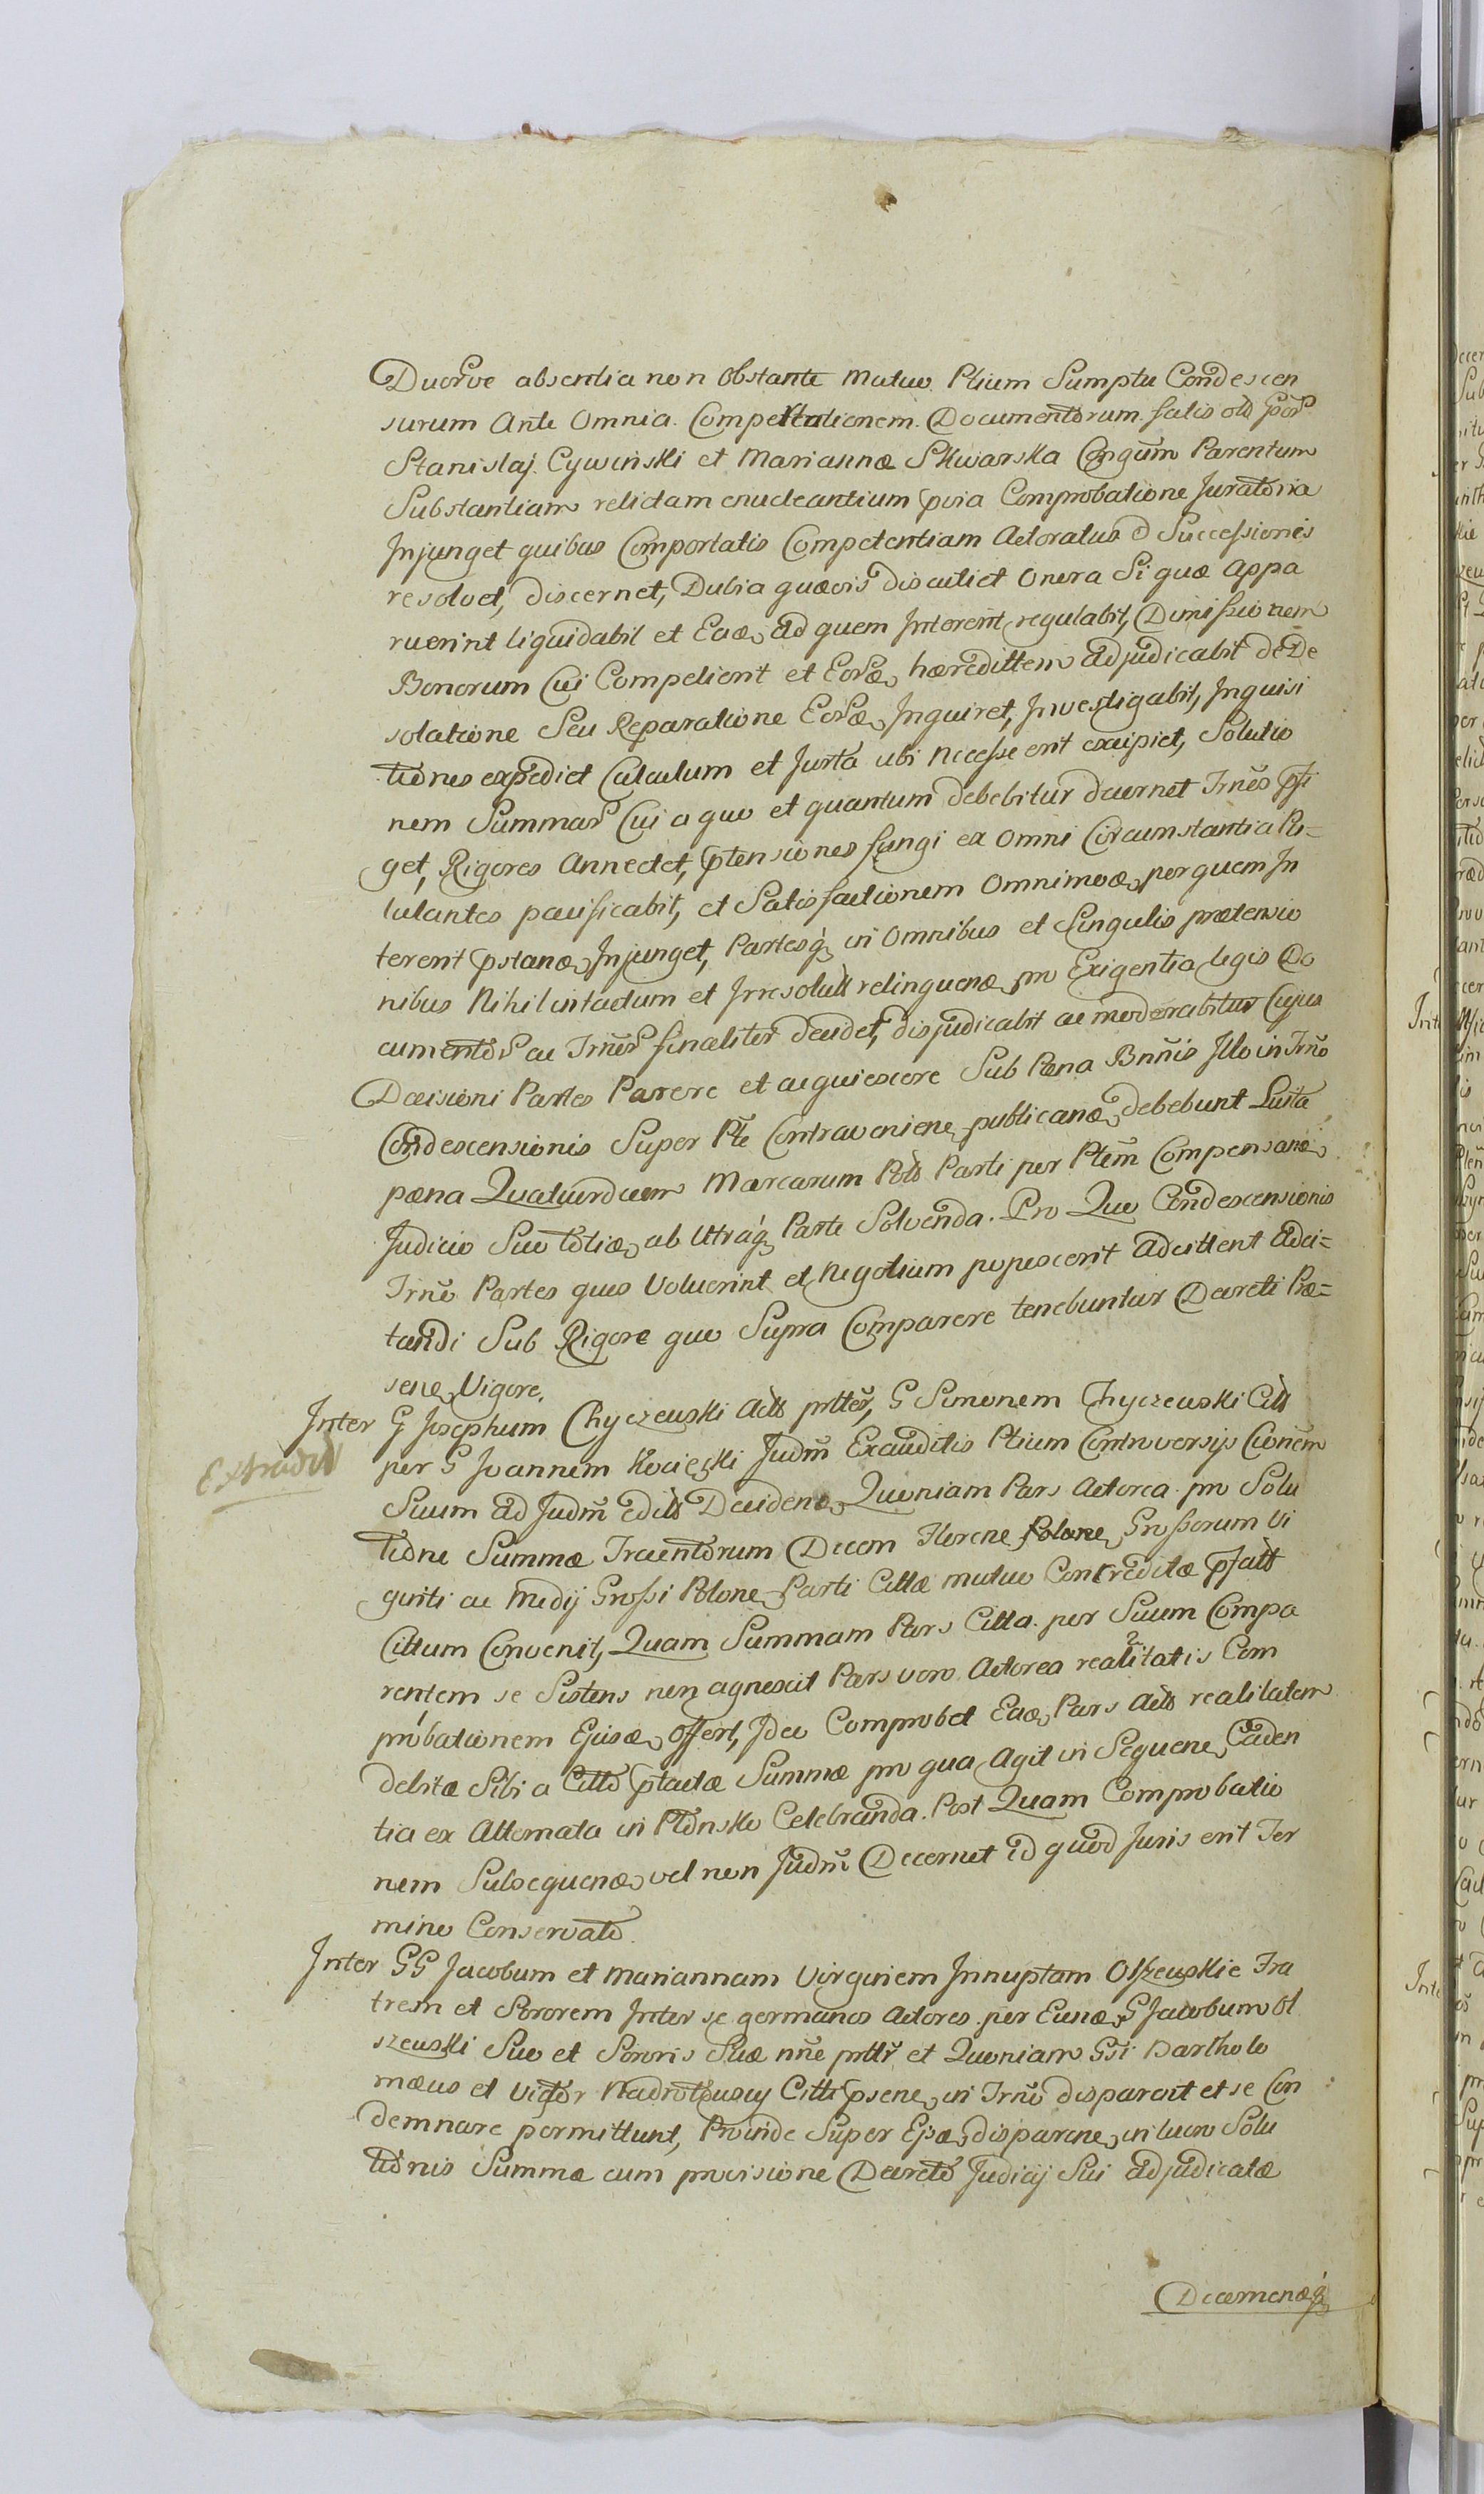 Duorve absentia non Obstante Mutuo Ptium Sumptu Condescen
surum Ante Omnia Comportationem Documentorum fatis olĩ Gor
Stanislaj Cywiński et Mariannæ Skwarska Cõngum Parentum
Substantiam relictam enucleantium pvia Comprobatione Juratoria
Injunget quibus Comportatis Competentiam Actoratus et Successionis
resolvet, discernet, Dubia quævis discutiet Onera Si quæ Appa
ruerint liquidabit et Eaæ ad quem Intererit regulabit, Dimissionem
Bonorum Cui Competierit et Eoræ hæredittem adjudicabit de De
solatione Seu Reparatione Eoræ Inquiret, Investigabit, Inquisi
tiones expediet Calculum et Jurta ubi Necesse erit excipiet, Solutio
nem Summar Cui a quo et quantum debebitur decernet Trñes pfi
get, Rigores Annectet, ptensiones fungi ex Omni Circumstantia Pu=
lulantes pacificabit, et Satisfactionem Omnimoæ per quem In
tererit pstanæ Injunget, Partesq́ in Omnibus et Singulis prætensio
nibus Nihil intactum et Irresolutt relinquenæ pro Exigentia legis Do
cumentor ac Trñer finaliter decidet, disjudicabit ac moderabitur Cujus
Decisioni Partes Parere et acquiescere Sub Pæna Bnñis Illo in Trño
Condescensionis Super Pte Contraveniene publicanæ debebunt Luita
pæna Quatuordecim Marcarum Pols Parti per Ptem Compensanæ
Judicio Suo totiæ ab Utraq́ Parte Solvenda. Pro Quo Condescensionis
Trño Partes quos Voluerint et Negotium poposcerit Adcittent Adci=
tandi Sub Rigore quo Supra Comparere tenebuntur Decreti Præ=
sene Vigore.
Inter G Josephum Chyczewski Acts prtter, G Simonem Chyczewski Citts
Extradit
per G Joannem Kocięcki Judm Exauditis Ptium Controversijs Cionem
Suum ad Judm edits Decidenæ Quoniam Pars Actorea pro Solu
tione Summæ Trecentorum Decem Florene Polone Grossorum Vi
ginti ac Medij Grossi Polone Parti Cittæ mutuo Contreditæ pfatt
Cittum Convenit, Quam Summam Pars Citta per Suum Compa
rentem se Sistens non agnoscit Pars vero Actorea realitatis Com
probationem Ejusæ Offert, Ideo Comprobet Eaæ Pars Acts realitatem
debitæ Sibi a Citto ptactæ Summæ pro qua Agit in Sequene Caden
tia ex Alternata in Plonsko Celebranda. Post Quam Comprobatio
nem Subsequenæ vel non Judm Decernet id quod Juris erit Ter
mino Conservato.
Inter GG Jacobum et Mariannam Virginem Innuptam Olszewskie Fra
trem et Sororem Inter se germanos Actores per Eunæ G Jacobum Ol
szewski Suo et Sororis Suæ nñe prttr et Quoniam Gsi Bartholo
mæus et Victor Nadrotowscy Citti psene in Trño disparent et se Con
demnare permittunt, Proinde Super Ejsæ disparene in lucro Solu
tionis Summæ cum provisione Decreto Judicij Sui adjudicatæ
Decernenæq́